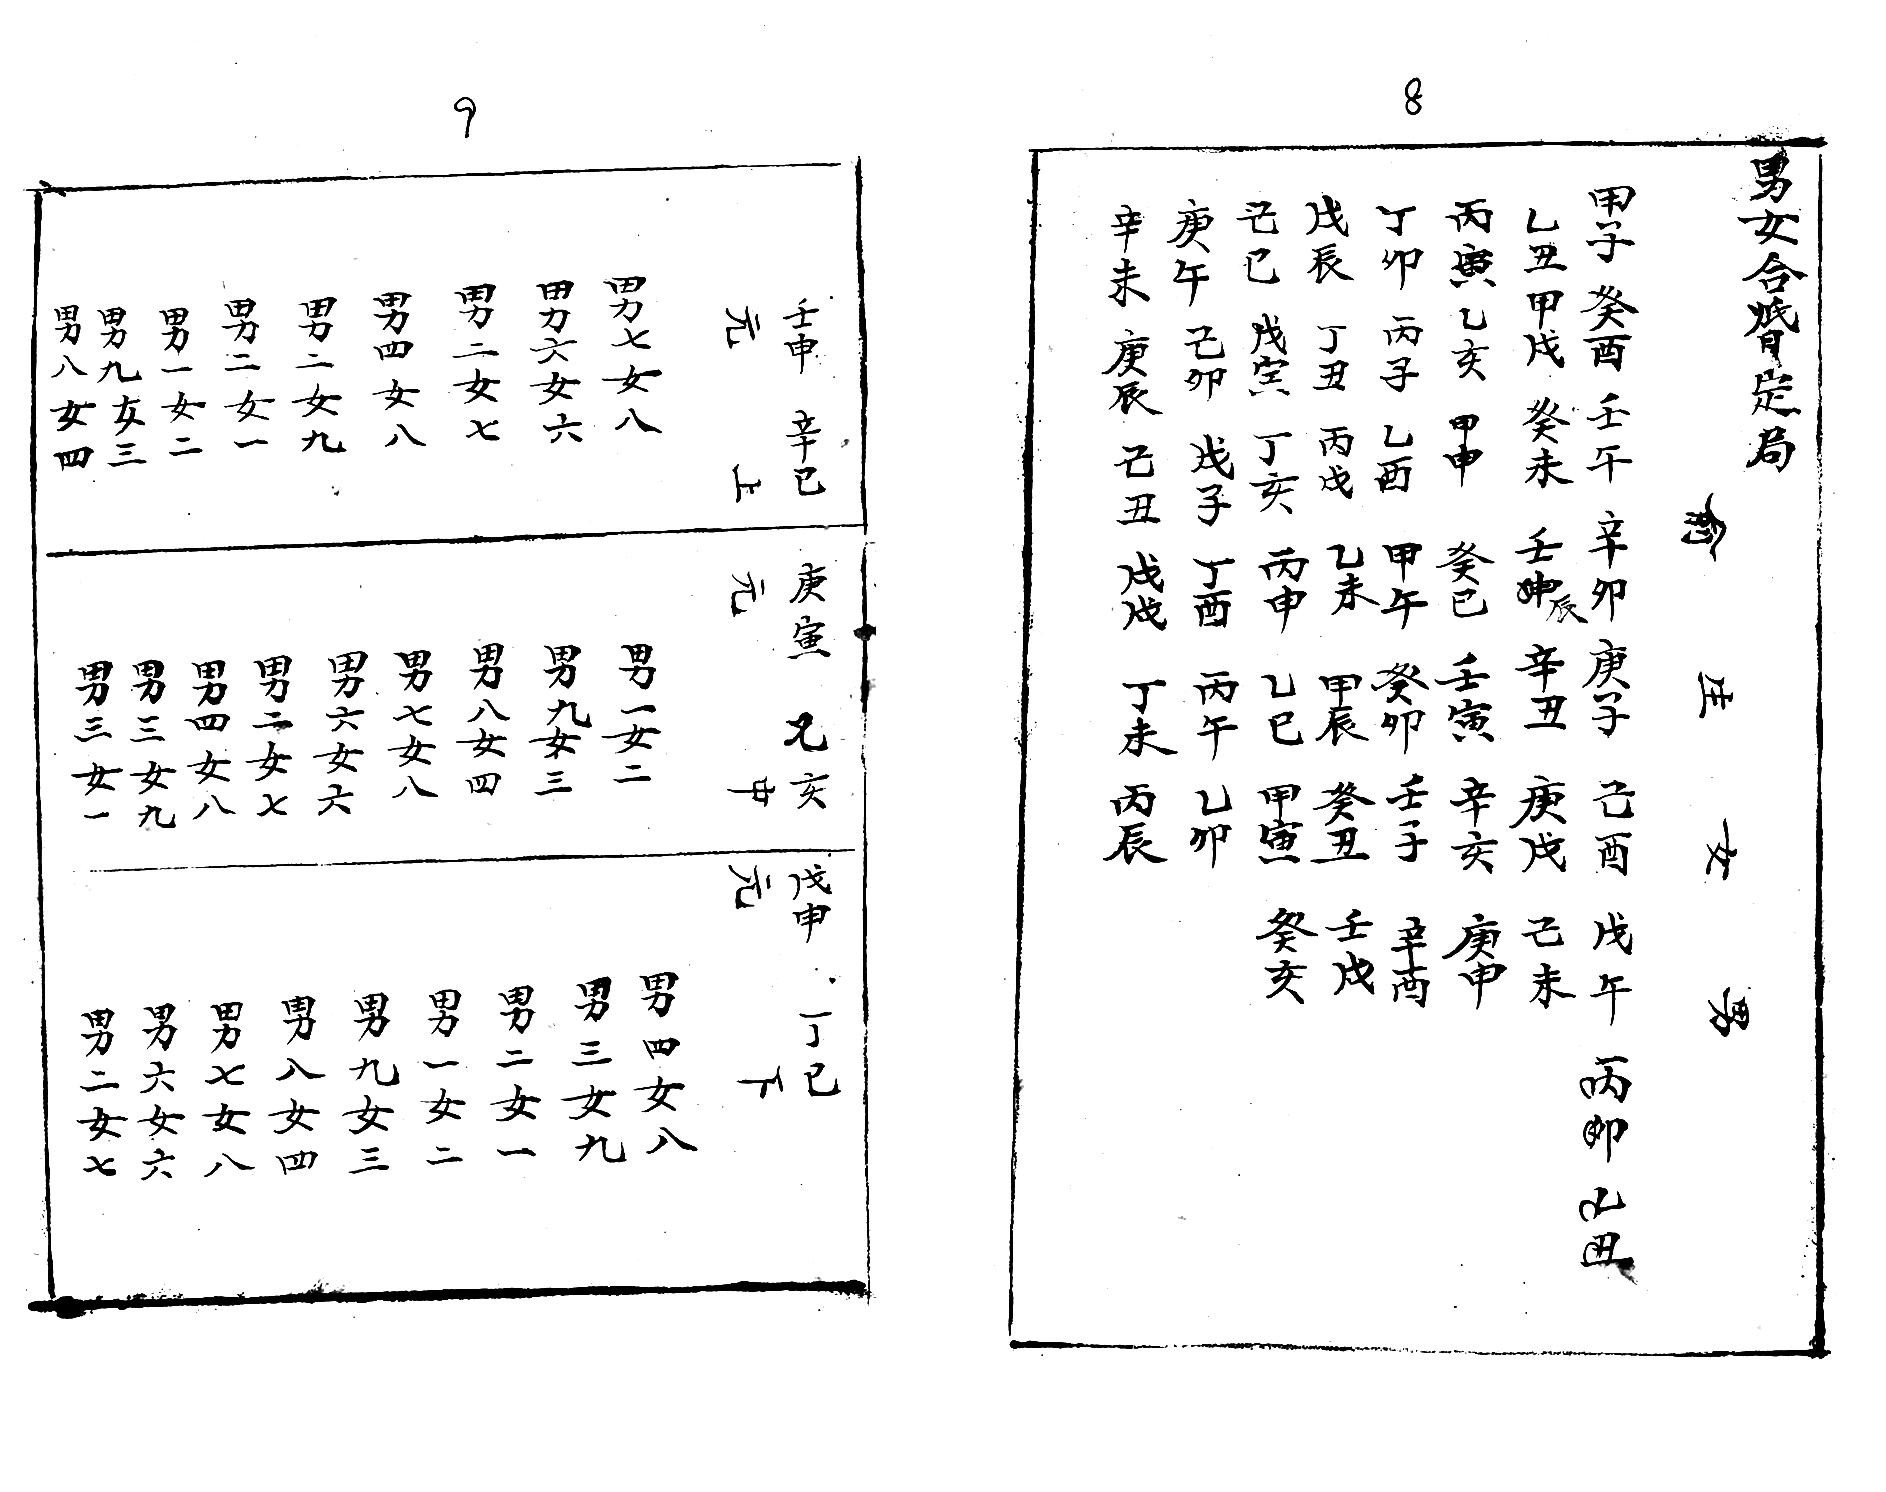 8
男女合婚定局
命生女男
甲子 癸酉 壬午 辛卯 庚子 己酉 戊午 丙卯 乙丑
乙丑 甲戌 癸未 壬辰 辛丑 庚戌 己未
丙寅 乙亥 甲申 癸巳 壬寅 辛亥 庚申
丁卯 丙子 乙酉 甲午 癸卯 壬子 辛酉
戊辰 丁丑 丙戌 乙未 甲辰 癸丑 壬戌
己巳 戊寅 丁亥 丙申 乙巳 甲寅 癸亥
庚午 己卯 戊子 丁酉 丙午 乙卯
辛未 庚辰 己丑 戊戌 丁未 丙辰
9
壬申 辛巳
元上
男七女八
男六女六
男二女七
男四女八
男二女九
男二女一
男一女二
男九女三
男八女四
庚寅 兄亥
元中
男一女二
男九女三
男八女四
男七女八
男六女六
男二女七
男四女八
男三女九
男三女一
戊申 丁巳
元下
男四女八
男三女九
男二女一
男一女二
男九女三
男八女四
男七女八
男六女六
男二女七